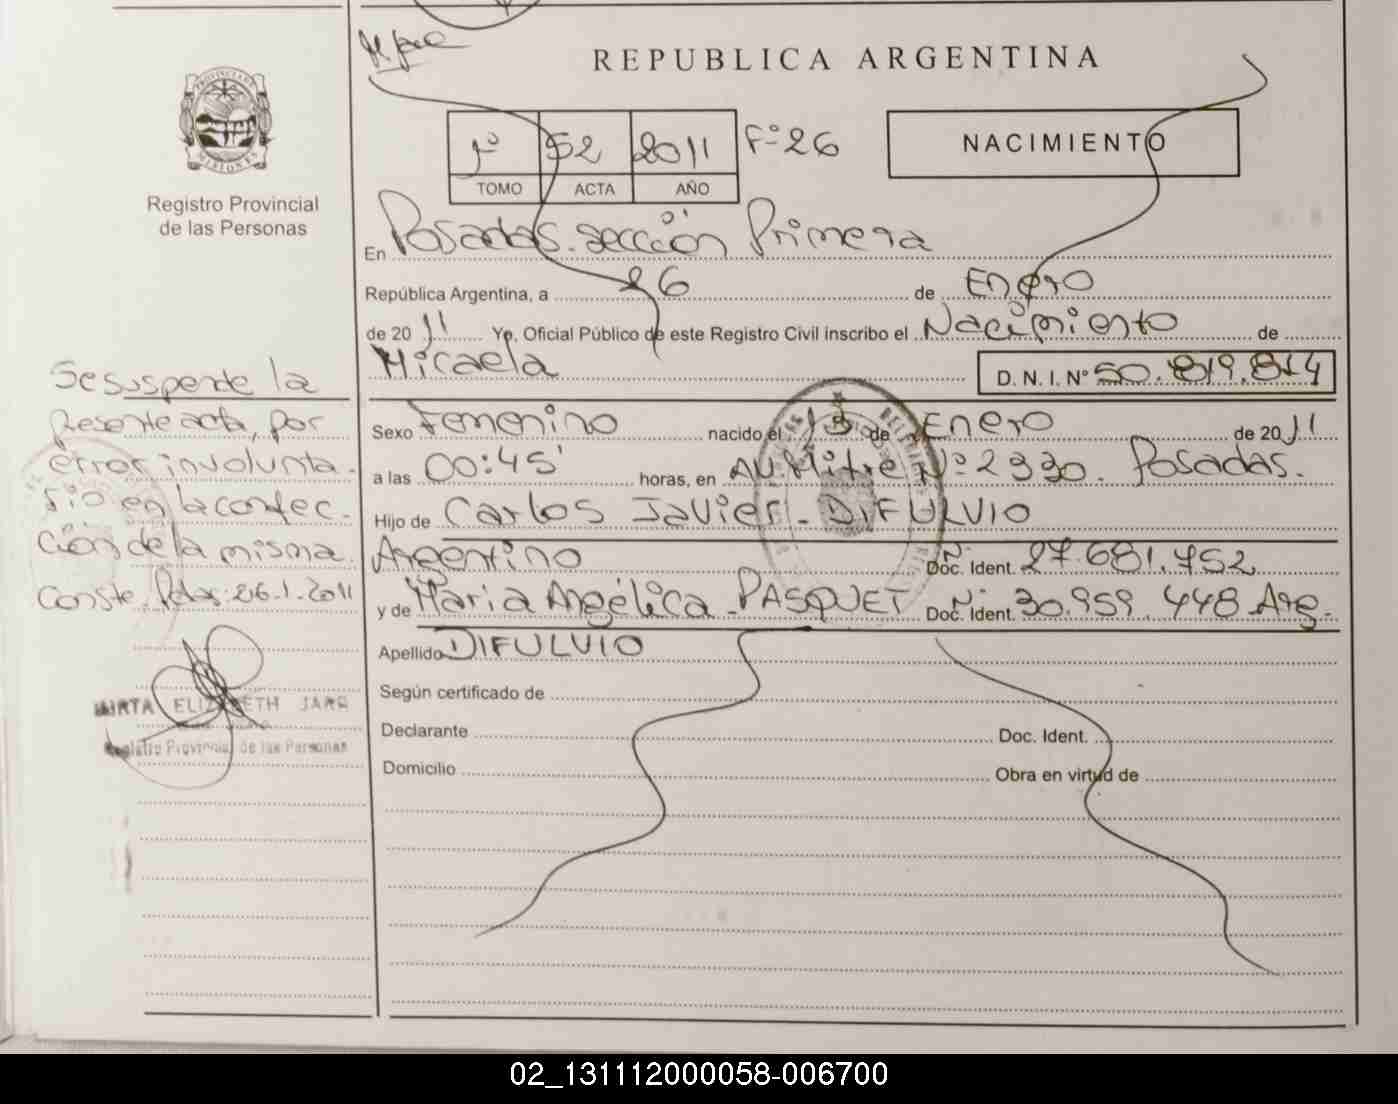 REPUBLICA ARGENTINA
PROVINCIA DE
MISIONES
Registro Provincial
de las Personas
1º 52 2011 Fº 26
TOMO ACTA AÑO
NACIMIENTO
En Posadas. sección Primera
República Argentina, a 26 de Enero
de 2011 Yo, Oficial Público de este Registro Civil inscribo el Nacimiento de
Micaela
D. N. I. Nº 50.819.814
Sexo Femenino nacido el 13 de Enero de 2011
a las 00:45' horas, en Av. Mitre Nº 2330. Posadas.
Hijo de Carlos Javier - DIFULVIO
Argentino Doc. Ident. Nº 27.681.752
y de Maria Angélica - PASQUET Doc. Ident. Nº 30.959.448 Arg.
Apellido DIFULVIO
Según certificado de
Declarante Doc. Ident.
Domicilio Obra en virtud de
Se suspende la
Presente acta, por
error involunta-
rio en la confec-
ción de la misma.
Conste. Pdas: 26.1.2011
MIRTA ELIZABETH JARA
Registro Provincial de las Personas
02_131112000058-006700